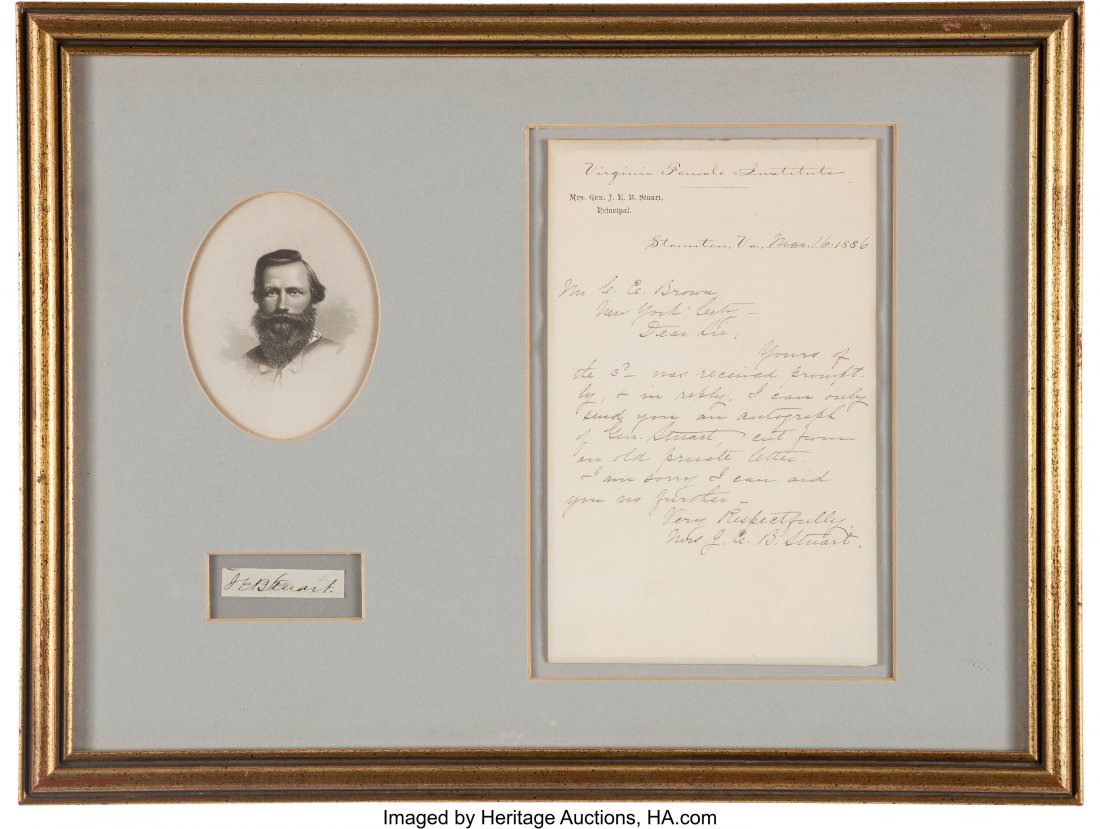 Virginia Female Institute
Mrs. Gen. J. E. B. Stuart,
Principal.
Staunton, Va., Mar. 16 1886
Mr. C. E. Brown,
New York City—
Dear Sir.
Yours of
the 3d was received prompt
ly, & in reply, I can only
send you an autograph
of Gen. Stuart, cut from
an old private letter.
I am sorry I can aid
you no further—
Very Respectfully,
Mrs. J. E. B. Stuart.
J E B Stuart.
Imaged by Heritage Auctions, HA.com